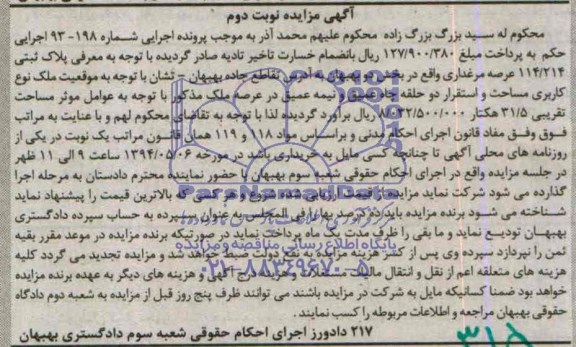 آگهی مزایده نوبت دوم
محکوم له سید بزرگ بزرگ زاده محکوم علیهم محمد آذر به موجب پرونده اجرایی شماره ۱۹۸-۹۳ اجرایی
حکم به پرداخت مبلغ ۱۲۷/۹۰۰/۳۸۰ ریال بانضمام خسارت تاخیر تادیه صادر گردیده با توجه به معرفی پلاک ثبتی
۱۱۴/۲۱۴ عرصه مرغداری واقع در بخش دو بهبهان به آدرس تقاطع جاده بهبهان - تشان با توجه به موقعیت ملک نوع
کاربری مساحت و استقرار دو حلقه چاه عمیق و نیمه عمیق در عرصه ملک مذکور با توجه به عوامل موثر مساحت
تقریبی ۳۱/۵ هکتار ۸/۰۳۲/۵۰۰/۰۰۰ ریال برآورد گردیده لذا با توجه به تقاضای محکوم لهم و با عنایت به مراتب
فوق وفق مفاد قانون اجرای احکام مدنی و براساس مواد ۱۱۸ و ۱۱۹ همان قانون مراتب یک نوبت در یکی از
روزنامه های محلی آگهی تا چنانچه کسی مایل به خریداری باشد در مورخه ۱۳۹۴/۰۵/۰۶ ساعت ۹ الی ۱۱ ظهر
در جلسه مزایده واقع در اجرای احکام حقوقی شعبه سوم بهبهان با حضور نماینده محترم دادستان به مرحله اجرا
گذارده می شود شرکت نماید مزایده از قیمت ارزیابی شده شروع و هر کسی که بالاترین قیمت را پیشنهاد نماید
شناخته می شود برنده مزایده باید ده درصد بها را فی المجلس به عنوان سپرده به حساب سپرده دادگستری
بهبهان تودیع نماید و ما بقی را ظرف مدت یک ماه پرداخت نماید در صورتیکه برنده مزایده در موعد مقرر بقیه
ثمن را نپردازد سپرده وی پس از کسر هزینه مزایده به نفع دولت ضبط خواهد شد و مزایده تجدید می گردد کلیه
هزینه های متعلقه اعم از نقل و انتقال مالیات و هزینه درج آگهی و هزینه های دیگر به عهده برنده مزایده
خواهد بود ضمنا کسانیکه مایل به شرکت در مزایده باشند می توانند ظرف پنج روز قبل از مزایده به شعبه دوم دادگاه
حقوقی بهبهان مراجعه و اطلاعات مربوطه را کسب نمایند.
۲۱۷ دادورز اجرای احکام حقوقی شعبه سوم دادگستری بهبهان
پایگاه اطلاع رسانی مناقصه و مزایده
۰۲۱-۸۸۳۴۹۶۷۰-۵
۳۱۵